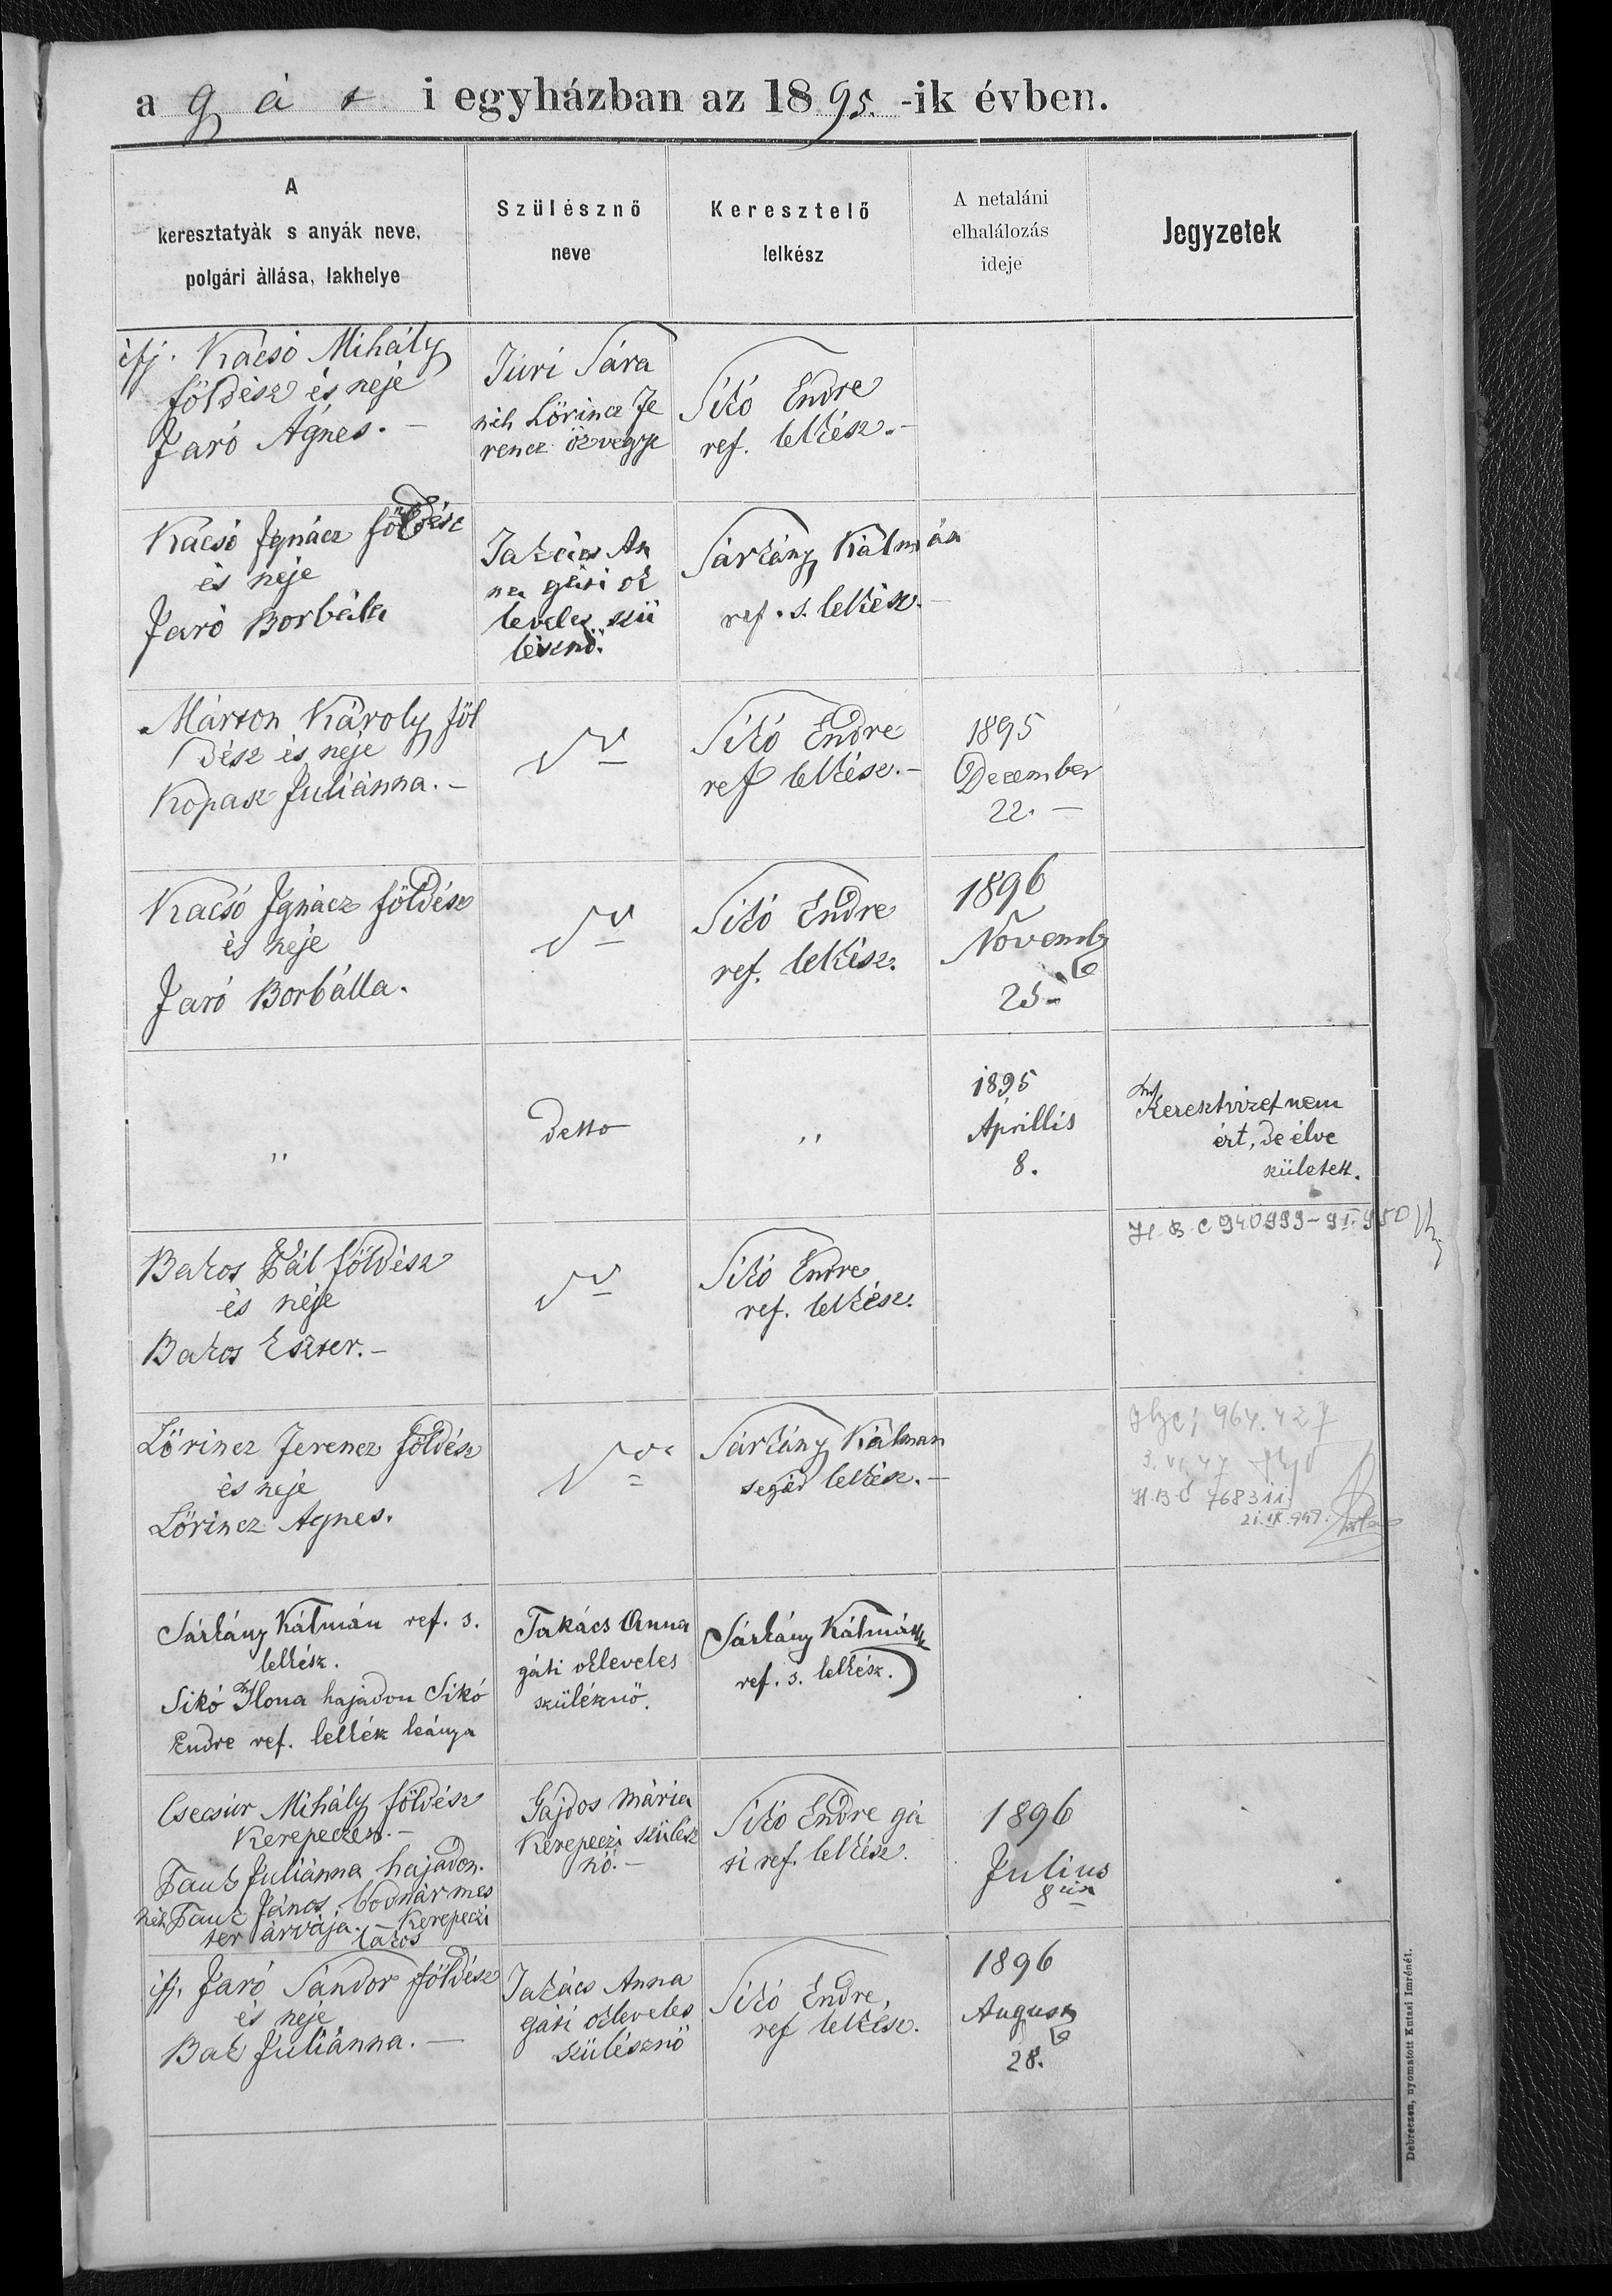 a gát i egyházban az 1895. -ik évben.
A
keresztatyàk s anyák neve,
polgári àllása, lakhelye
Szülésznő
neve
Keresztelő
lelkész
A netaláni
elhalálozás
ideje
Jegyzetek
ifj. Kácsó Mihály
földész és neje
Jaró Ágnes. –
Türi Sára
néh Lőrincz Fe
rencz özvegye
Sikó Endre
ref. lelkész. –
Kácsó Ignácz földész
és neje
Jaró Borbála
Takács An
na gáti ok
leveles szü
lésznő.
Sárkány Kálmán
ref. s. lelkész. –
Márton Károly föl
dész és neje
Kopasz Juliánna. –
Sikó Endre
ref lelkész. –
1895
December
22. –
Kacsó Ignácz földész
és neje
Jaró Borbálla.
Sikó Endre
ref. lelkész.
1896
Novemb
25 –
,,
detto
,,
1895
Áprillis
8.
Keresztvizet nem
ért, de élve
született.
H. B. C 940999 – 9 I. 950
Bakos Pál földész
és néje
Bakos Eszter. –
Sikó Endre
ref. lelkész.
Lőrincz Ferencz földész
és neje
Lőrincz Agnes.
Sárkány Kálman
segéd lelkész. –
964.427
H. B. C 768311
21. IX. 947.
Sárkány Kálmán ref. s.
lelkész.
Sikó Ilona hajadon Sikó
Endre ref. lelkék leánya
Takács Anna
gáti okleveles
szüléknő.
Sárkány Kálmán
ref. s. lelkész.
Csecsür Mihály földész
Kerepeczen. –
Pauk Juliánna hajadon.
néh Pauk János bodnár mes
ter árvája. – Kerepeczi
lakos
Gájdos Mária
Kerepeczi szülész
nő. –
Sikó Endre gá
ti ref. lelkész.
1896
Julius
8án
ifj. Jaró Sándor földész
és neje
Bak Juliánna. –
Takács Anna
gáti okleveles
szülésznő
Sikó Endre
ref lelkész.
1896
August
28.
Debreczen, nyomatott Kutasi Imrénél.